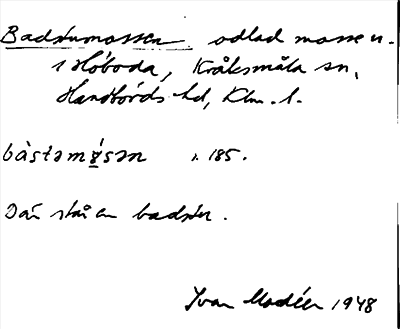 Badstumossen odlad mosse n.
i Höboda, Kråksmåla sn,
Handbörds hd, Klm. l.
bàstəmɷ́sən s. 185.
Där står en badstu.
Ivar Modéer 1948